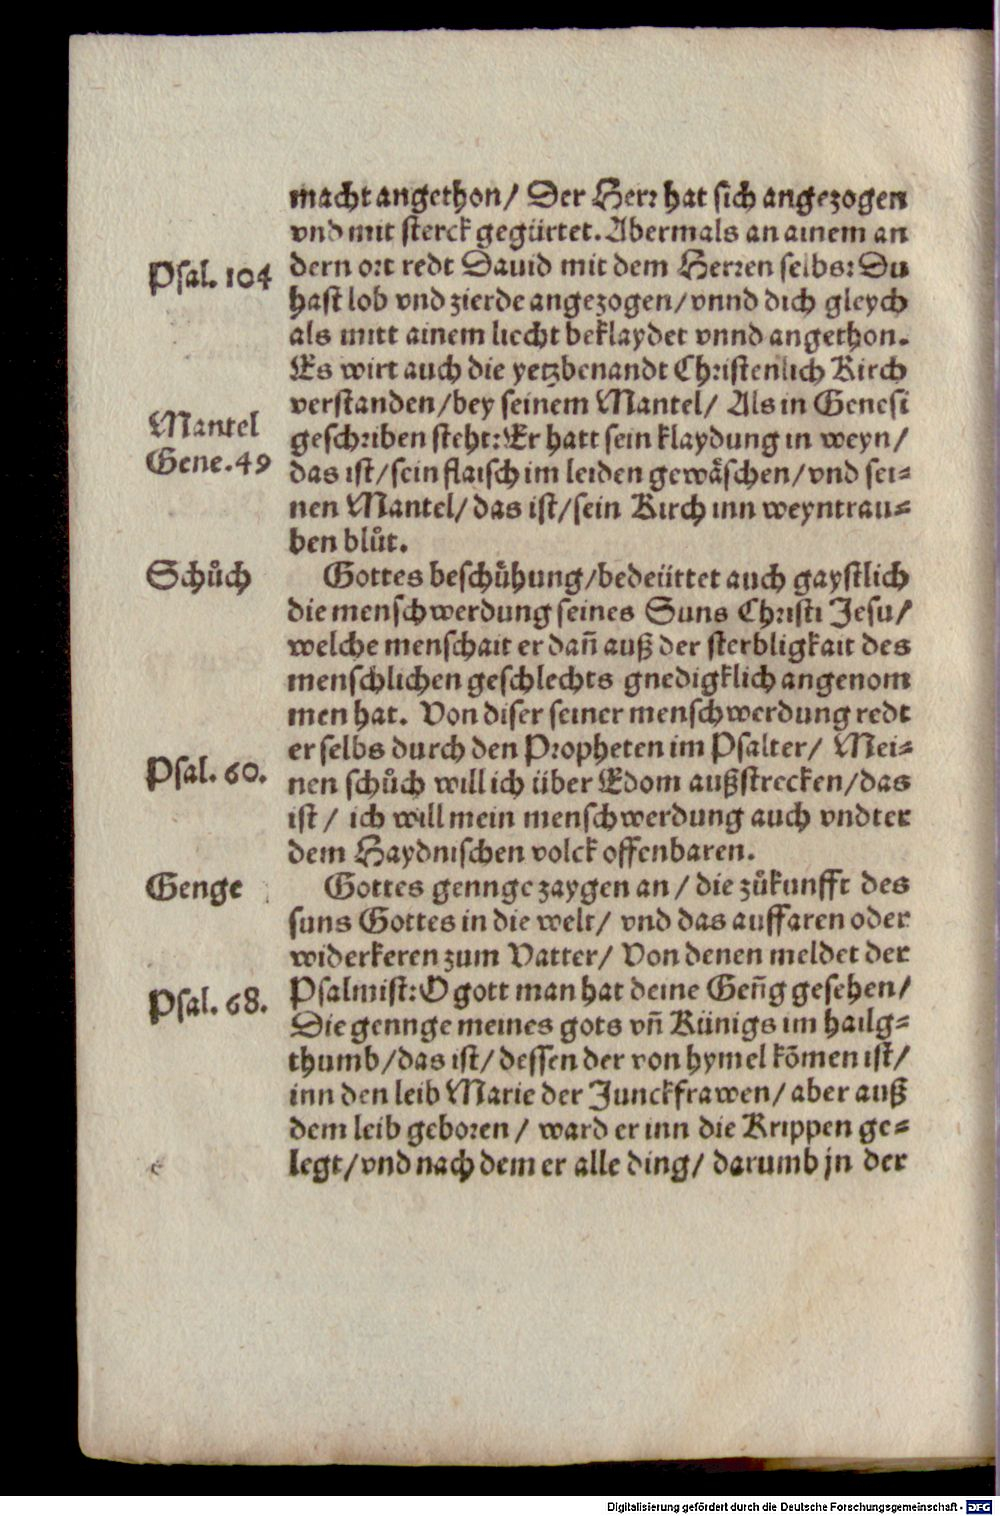 macht angethon/ Der Herr hat sich angezogen
vnd mit sterck gegürtet. Abermals an ainem an
Psal. 104
dern ort redt Dauid mit dem Herren selbs: Du
hast lob vnd zierde angezogen/ vnnd dich gleych
als mitt ainem liecht beklaydet vnnd angethon.
Es wirt auch die yetzbenandt Christenlich Kirch
Mantel
verstanden/ bey seinem Mantel/ Als in Genesi
Gene. 49
geschriben steht: Er hatt sein klaydung in weyn/
das ist/ sein flaisch im leiden gewåschen/ vnd sei-
nen Mantel/ das ist/ sein Kirch inn weyntrau-
ben blůt.
Schůch
Gottes beschůhung/ bedeüttet auch gaystlich
die menschwerdung seines Suns Christi Jesu/
welche menschait er dañ auß der sterbligkait des
menschlichen geschlechts gnedigklich angenom
men hat. Von diser seiner menschwerdung redt
er selbs durch den Propheten im Psalter/ Mei-
Psal. 60.
nen schůch will ich über Edom außstrecken/ das
ist/ ich will mein menschwerdung auch vndter
dem Haydnischen volck offenbaren.
Genge
Gottes gennge zaygen an/ die zůkunfft des
suns Gottes in die welt/ vnd das auffaren oder
widerkeren zum Vatter/ Von denen meldet der
Psal. 68.
Psalmist: O gott man hat deine Geñg gesehen/
Die gennge meines gots vñ Künigs im hailg-
thumb/ das ist/ dessen der von hymel kõmen ist/
inn den leib Marie der Junckfrawen/ aber auß
dem leib geboren/ ward er inn die Krippen ge-
legt/ vnd nach dem er alle ding/ darumb jn der
Digitalisierung gefördert durch die Deutsche Forschungsgemeinschaft - DFG